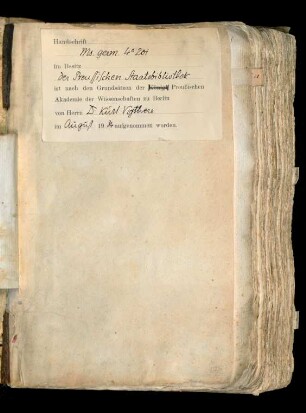 Handschrift
Ms germ. 4° 201
im Besitz
Der Preußischen Staatsbibliothek
ist nach den Grundsätzen der Preußischen
Akademie der Wissenschaften zu Berlin
von Herrn Dr. Kurt
im August 19 aufgenommen worden.